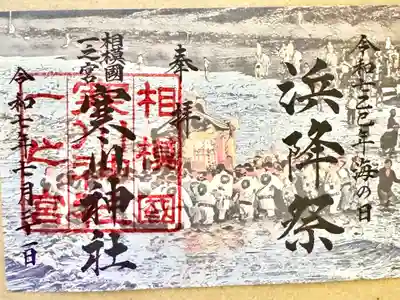 令和七乙巳年海の日
浜降祭
奉拝
相模國
一之宮
寒川神社
令和七年七月二十一日
相模國
一之宮